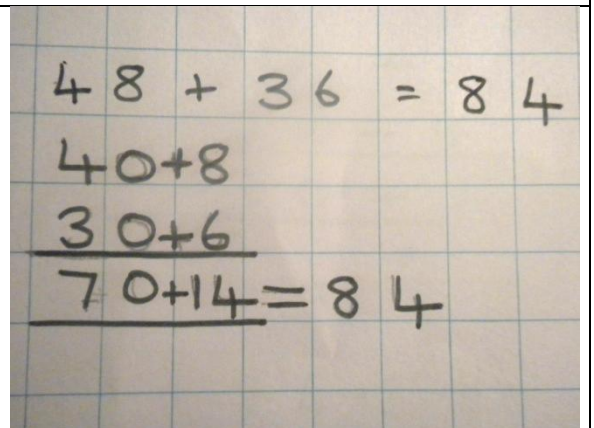 48 + 36 = 84
40+8
30+6
70+14=84